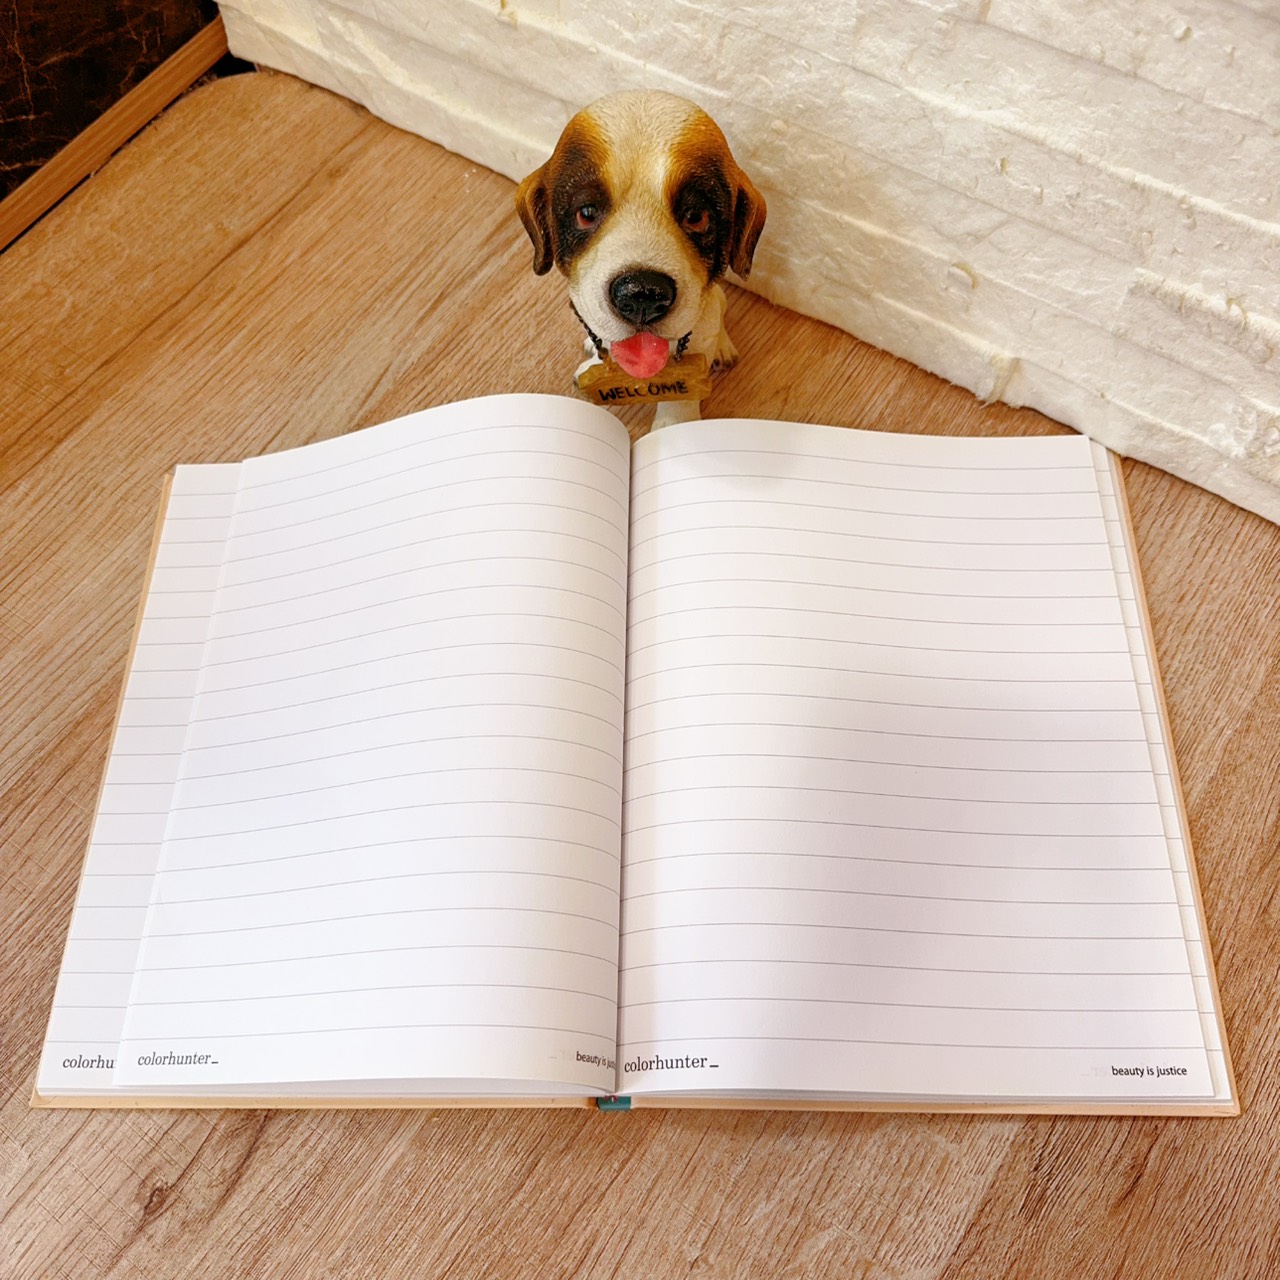 WELCOME
colorhu
colorhunter_
beauty is just
colorhunter_
beauty is justice